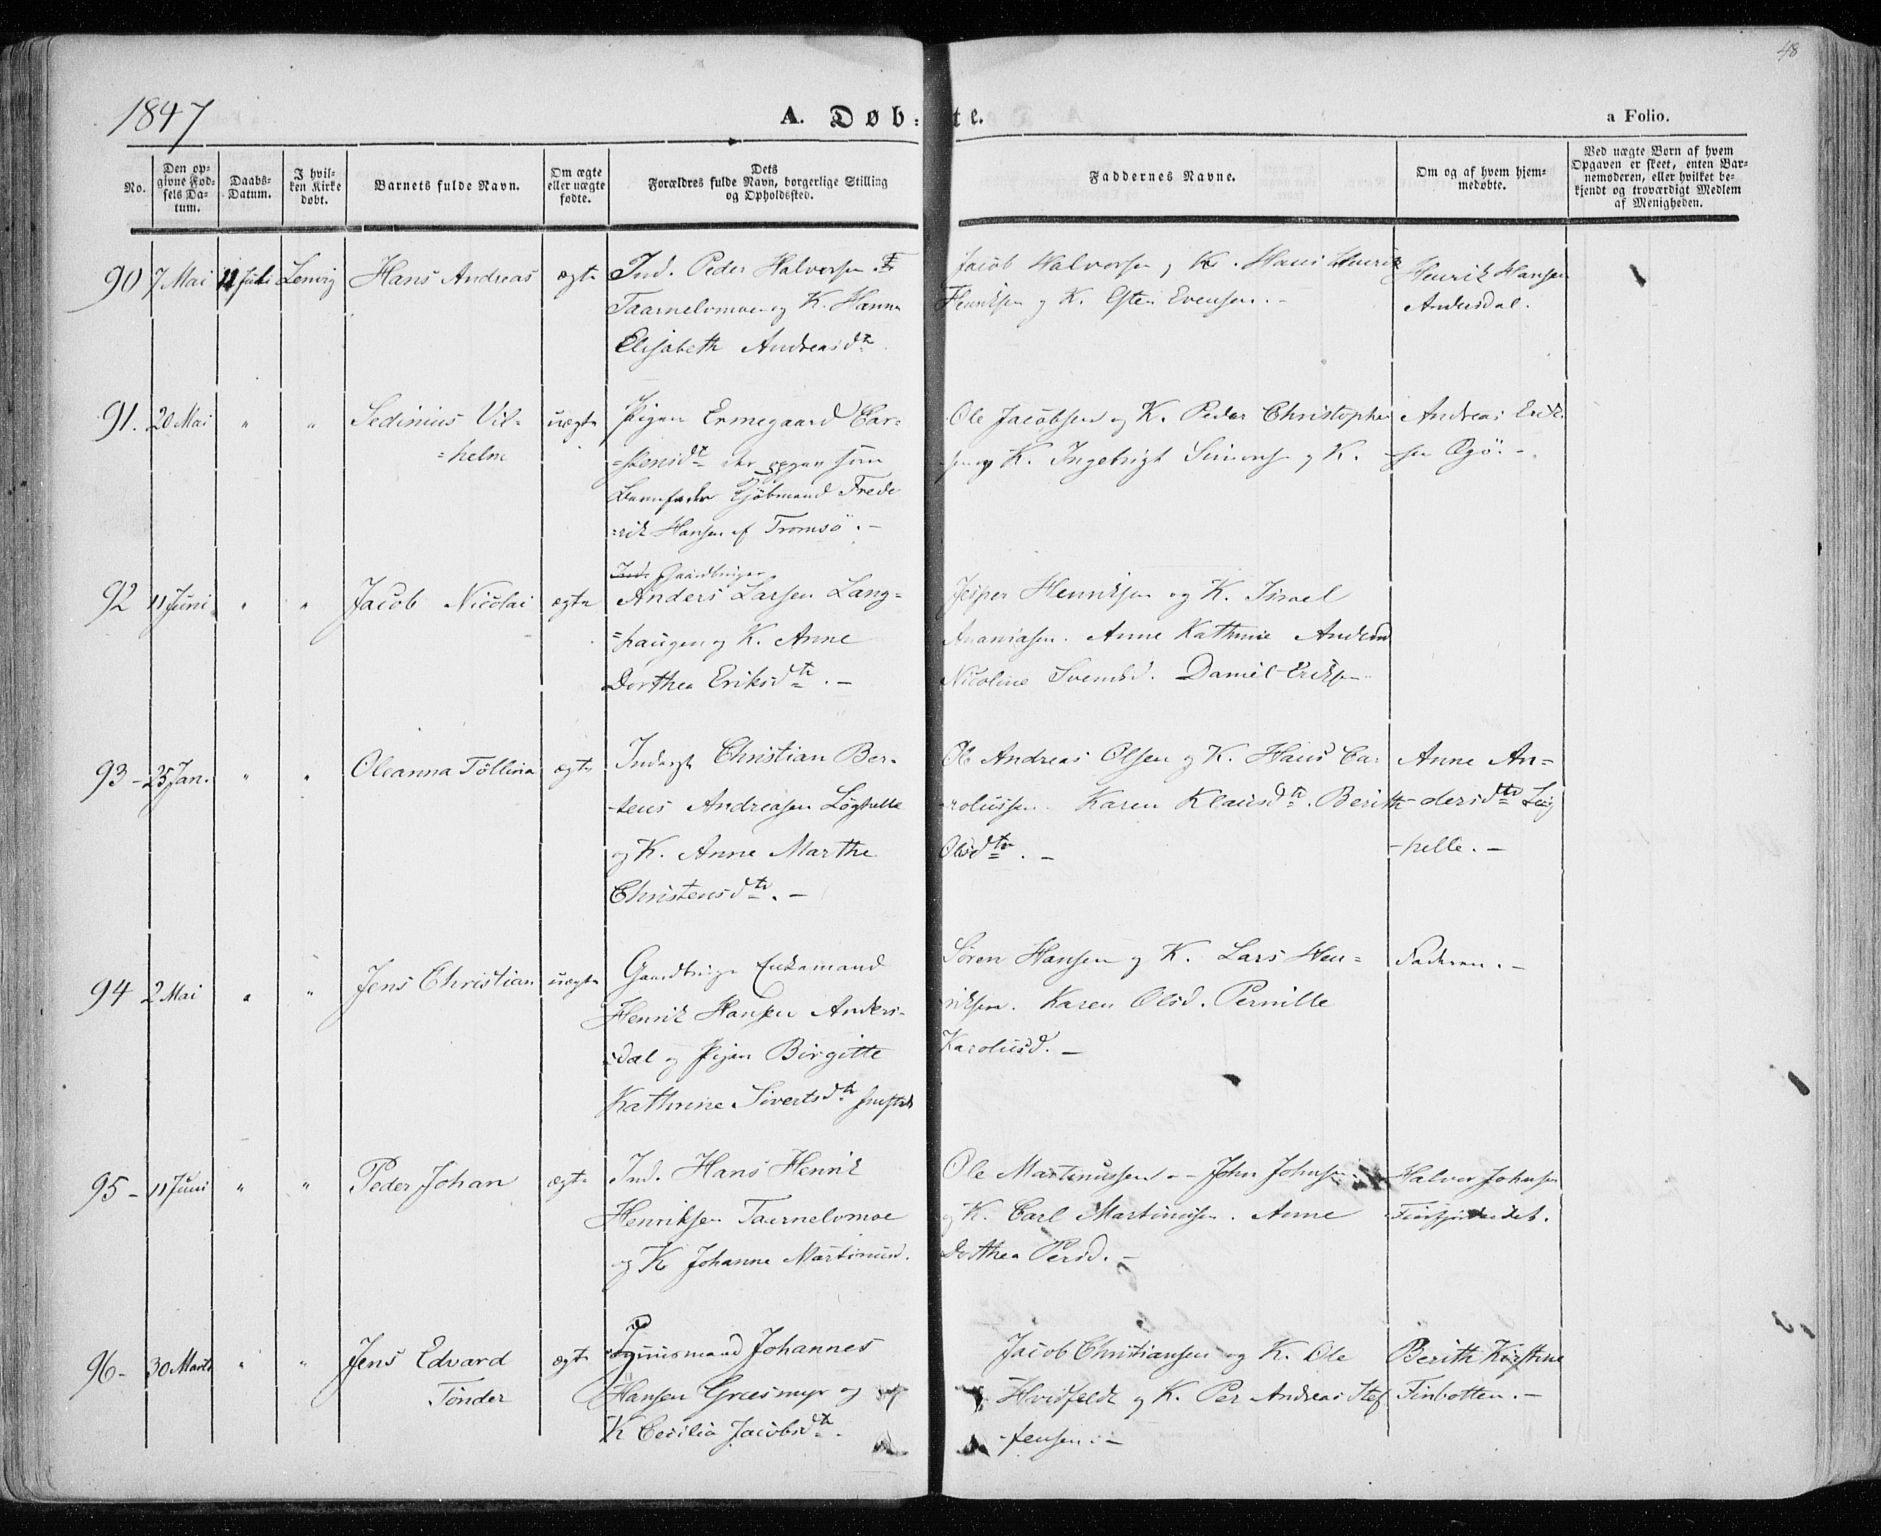 48
1847
A. Døb-te.
a Folio.
No.
Den opgivne Fødsels Datum.
Daabs-Datum.
I hvilken Kirke døbt.
Barnets fulde Navn.
Om ægte eller uægte fødte.
Dets Forældres fulde Navn, borgerlige Stilling og Opholdssted.
Faddernes Navne.
Om og af hvem hjemmedøbte.
Ved uægte Børn af hvem Opgaven er skeet, enten Barnemoderen, eller hvilket bekjendt og troværdigt Medlem af Menigheden.
90 7 Mai 11 Juli Lenvig Hans Andreas ægte
Ind. Peder Halvorsen
Taarnelvmoe og K. Hanna
Elisabeth Andreasdtr
Jacob Halvorsen og K. Hans Henrik
Henriksen og K. Esten Evensen. -
Henrik Hansen
Andersdal.
91. 20 Mai " " Sedinius Vil-
=helm
uægte
Pigen Ermegaard Car-
=stensdtr der opgav som
Barnefader Kjøbmand Frede
=rik Hansen af Tromsö. -
Ole Jacobsen og K. Peder Christopher
sen og K. Ingebrigt Simons og K.
Andreas Erik-
sen Øgö. -
92 11 Juni " " Jacob Nicolai ægte
Ind. Gaardbruger
Anders Larsen Lang-
=haugen og K. Anne
Dorthea Eriksdtr. -
Jesper Henriksen og K. Israel
Ananiasen. Anne Kathrine Andersd
Nicoline Svendsd. Daniel Eriksen
93 - 25 Jan. " " Oleanna Töllina ægte
Indergst Christian Ber-
-teus Andreasen Løghelle
og K. Anne Marthe
Christensdtr. -
Ole Andreas Olsen og K. Hans Ca-
rolussen. Karen Klausdtr. Berith
Olsdtr. -
Anne An-
-dersdtr Løg
-helle. -
94 2 Mai " " Jens Christian uægte
Gaardbruger Enkemand
Henrik Hansen Anders-
-dal og Pigen Birgitte
Kathrine Sivertsdtr
Sören Hansen og K. Lars Hen-
riksen. Karen Olsd. Pernille
Karolusd. -
Faderen. -
95 - 11 Juni " " Peder Johan ægte
Ind. Hans Henrik
Henriksen Taarnelvmoe
og K Johanne Martinusd.
Ole Martinussen - - John Johnsen
og K. Carl Martinusen. Anne
Dorthea Persd. -
Halvor Johnsen
Finfjordeidet.
96 - 30 Marts " " Jens Edvard
Tönder
ægte
Johannes
Hansen Græsmyr og
K Cecilia Jacobsdtr.
Jacob Christiansen og K. Ole
Hvidfeldt og K. Per Andreas Stef
-fensen. -
Berith Kirstine
Finbotten. -